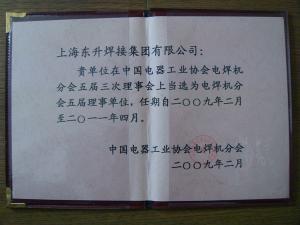 上海东升焊接集团有限公司：
贵单位在中国电器工业协会电焊机
分会五届三次理事会上当选为电焊机分
会五届理事单位，任期自二〇〇九年二月
至二〇一一年四月。
中国电器工业协会电焊机分会
二〇〇九年二月